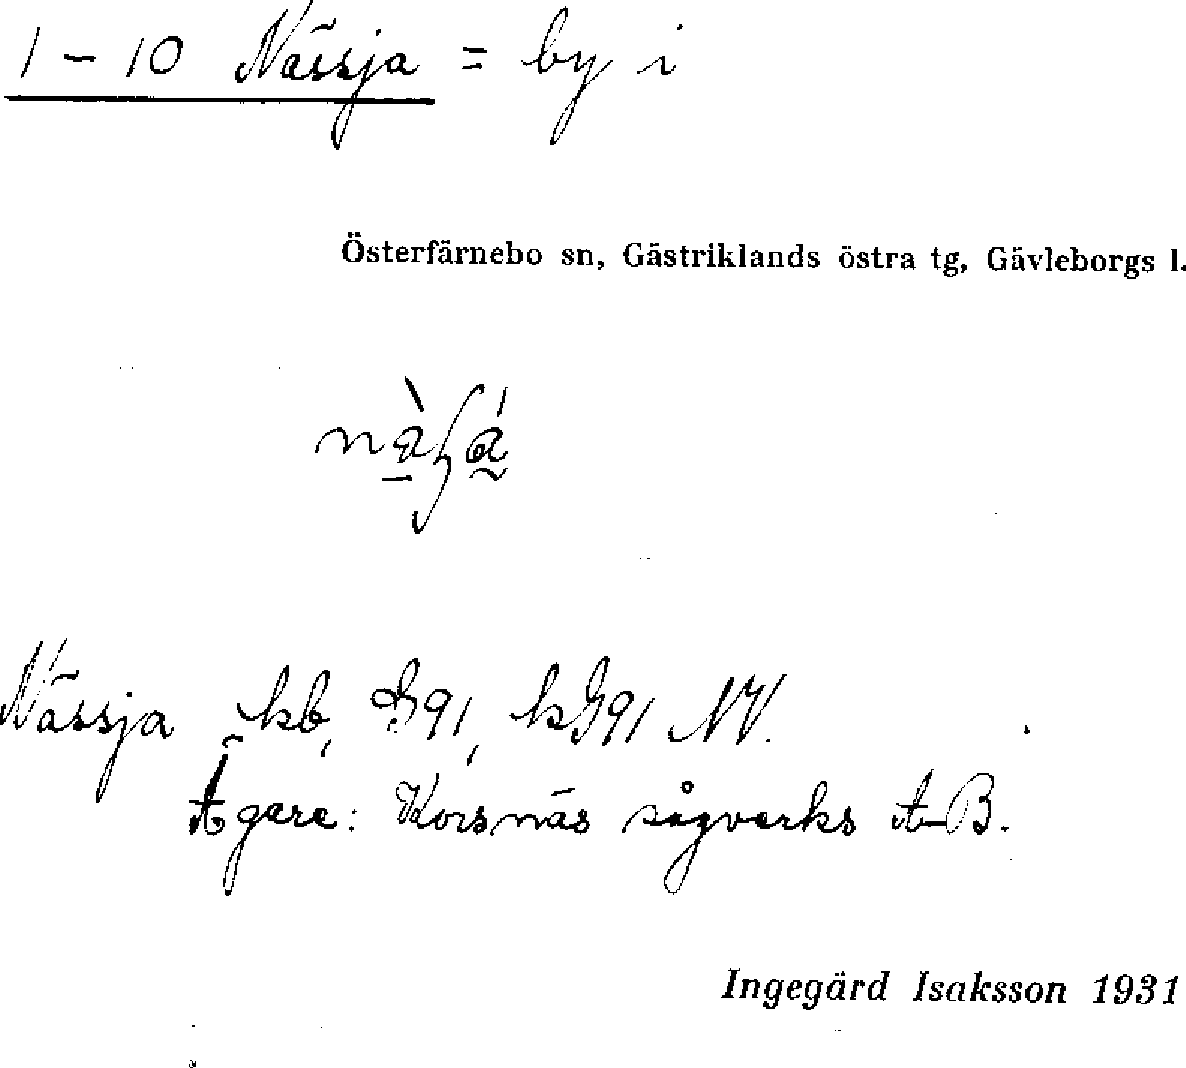 1 - 10 Nässja = by i
Österfärnebo sn, Gästriklands östra tg, Gävleborgs l.
Nässja kb, G91, kG91 NV.
Ägare: Korsnäs sågverks A-B.
Ingegärd Isaksson 1931